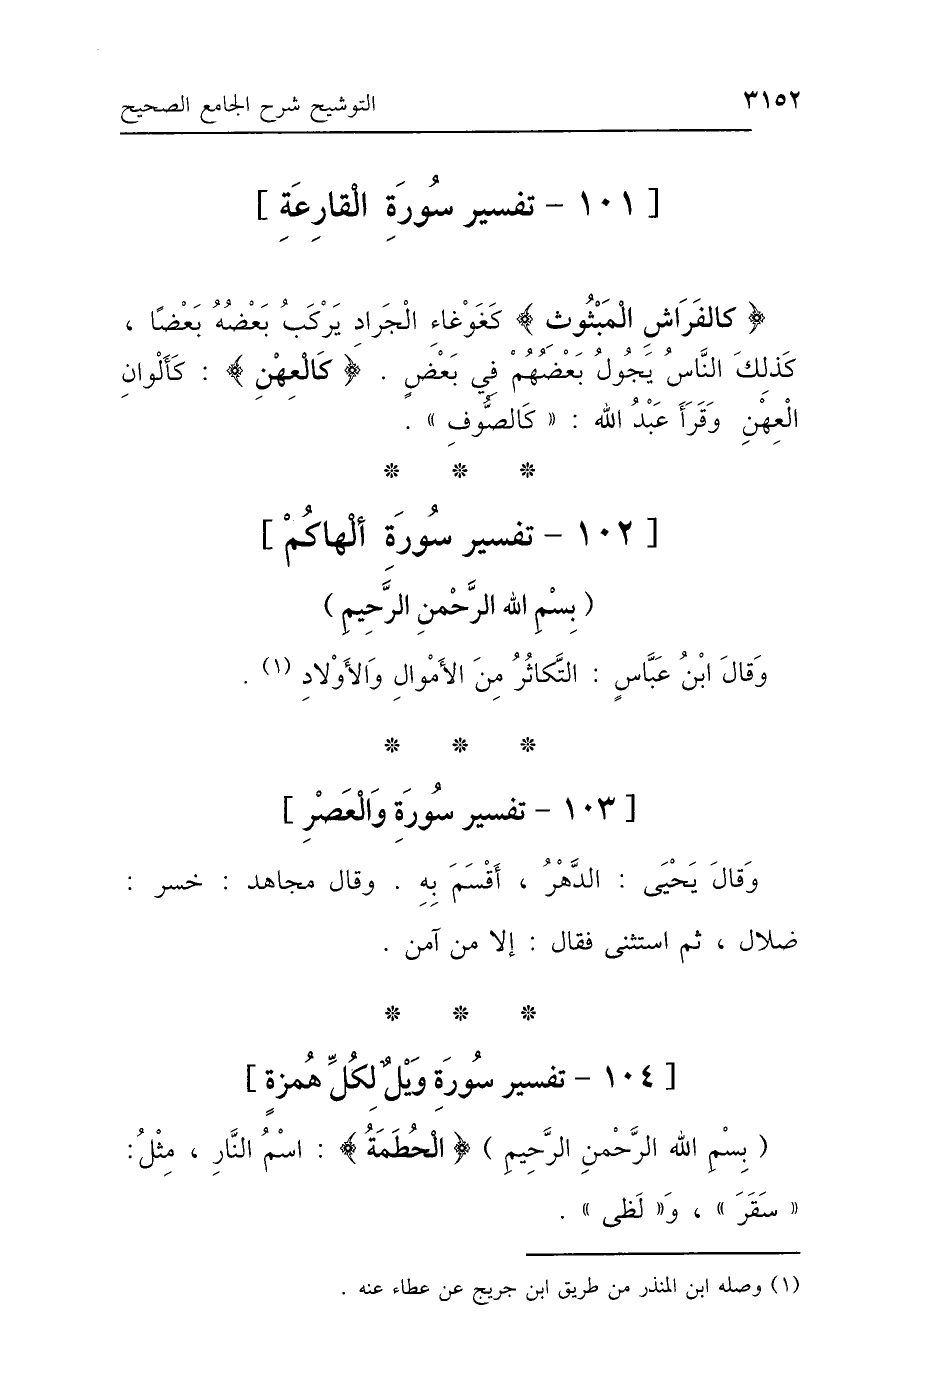 ٣١٥٢ التوشيح شرح الجامع الصحيح
[ ١٠١ - تفسير سُورَةِ الْقارِعَةِ ]
﴿ كالفَرَاشِ الْمَبْثُوثِ ﴾ كَغَوْغاءِ الْجَرادِ يَرْكَبُ بَعْضُهُ بَعْضًا ،
كَذلِكَ النَّاسُ يَجُولُ بَعْضُهُمْ فِي بَعْضٍ . ﴿ كَالْعِهْنِ ﴾ : كَأَلْوانِ
الْعِهْنِ وَقَرَأَ عَبْدُ الله : « كَالصُّوفِ » .
* * *
[ ١٠٢ - تفسير سُورَةِ ألْهاكُمْ ]
( بِسْمِ الله الرَّحْمنِ الرَّحِيمِ )
وَقالَ ابْنُ عَبَّاسٍ : التَّكاثُرُ مِنَ الأَمْوالِ وَالأَوْلادِ (١) .
* * *
[ ١٠٣ - تفسير سُورَةِ وَالْعَصْرِ ]
وَقالَ يَحْيَى : الدَّهْرُ ، أَقْسَمَ بِهِ . وقال مجاهد : خسر :
ضلال ، ثم استثنى فقال : إلا من آمن .
* * *
[ ١٠٤ - تفسير سُورَةِ وَيْلٌ لِكُلِّ هُمزةٍ ]
( بِسْمِ الله الرَّحْمنِ الرَّحِيمِ ) ﴿ الْحُطَمَةُ ﴾ : اسْمُ النَّارِ ، مِثْلُ:
« سَقَرَ » ، وَ« لَظى » .
(١) وصله ابن المنذر من طريق ابن جريج عن عطاء عنه .